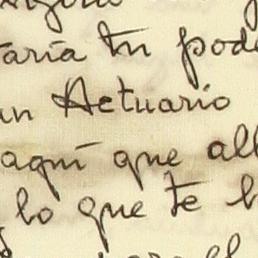 taría tu pod
un Actuario
aquí que all
lo que te h